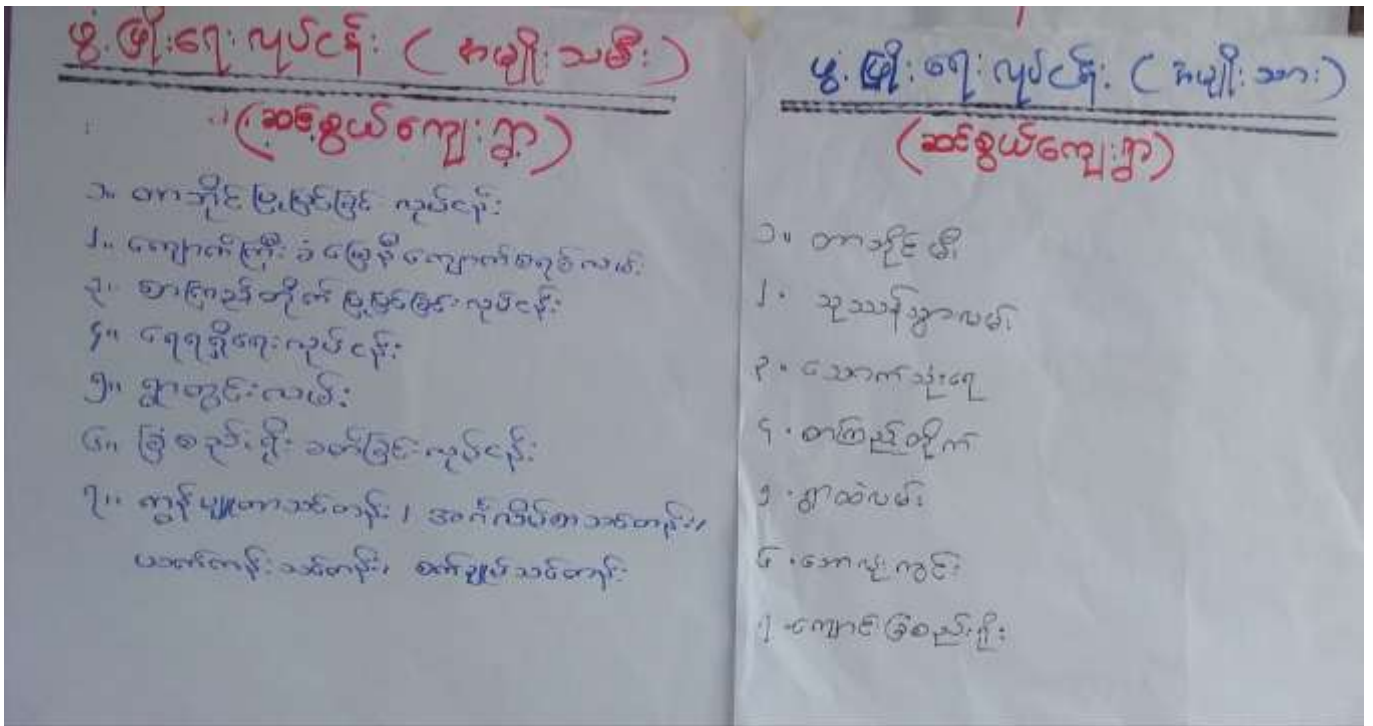 ဖွံ့ဖြိုးရေးလုပ်ငန်း (အမျိုးသမီး)
(ဆင်စွယ်ကျေးရွာ)
၁။ တာဘိုင် ပြုပြင်ခြင်း လုပ်ငန်း
၂။ ကျောက်ကြီးခံ မြေနီကျောက်စရစ်လမ်း
၃။ စာကြည့်တိုက် ပြုပြင်ခြင်းလုပ်ငန်း
၄။ ရေရရှိရေးလုပ်ငန်း
၅။ ရွာတွင်းလမ်း
၆။ ခြံစည်းရိုး ခတ်ခြင်းလုပ်ငန်း
၇။ ကွန်ပျူတာသင်တန်း၊ အင်္ဂလိပ်စာသင်တန်း၊
ယက်ကန်းသင်တန်း၊ စက်ချုပ်သင်တန်း
ဖွံ့ဖြိုးရေးလုပ်ငန်း (အမျိုးသား)
(ဆင်စွယ်ကျေးရွာ)
၁။ တာဘိုင်မီး
၂။ သုဿန်သွားလမ်း
၃။ သောက်သုံးရေ
၄။ စာကြည့်တိုက်
၅။ ရွာထဲလမ်း
၆။ ဘောလုံးကွင်း
၇။ ကျောင်းခြံစည်းရိုး